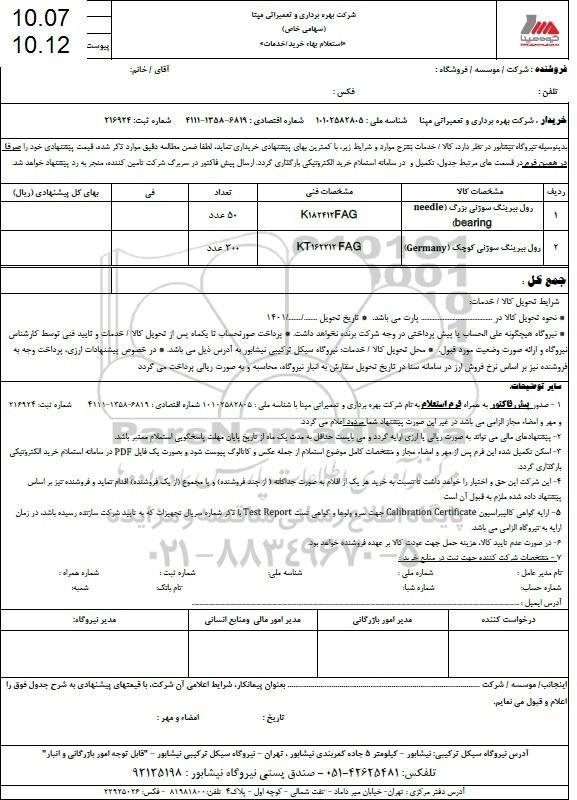 10.07
10.12
پیوست
شرکت بهره برداری و تعمیراتی مپنا
(سهامی خاص)
«استعلام بهاء خرید/خدمات»
گروه مپنا
فروشنده : شرکت / موسسه / فروشگاه : آقای / خانم:
تلفن : فکس :
خریدار : شرکت بهره برداری و تعمیراتی مپنا شناسه ملی : ۱۰۱۰۲۵۸۲۸۰۵ شماره اقتصادی : ۶۸۱۹-۱۳۵۸-۴۱۱۱ شماره ثبت: ۲۱۶۹۲۴
بدینوسیله نیروگاه نیشابور در نظر دارد، کالا / خدمات بشرح موارد و شرایط زیر، با کمترین بهای پیشنهادی خریداری نماید، لطفا ضمن مطالعه دقیق موارد ذکر شده، قیمت پیشنهادی خود را صرفا
در همین فرم در قسمت های مرتبط جدول، تکمیل و در سامانه استعلام خرید الکترونیکی بارگذاری گردد. ارسال پیش فاکتور در سربرگ شرکت تامین کننده، منجر به رد پیشنهاد خواهد شد.
ردیف مشخصات کالا مشخصات فنی تعداد فی بهای کل پیشنهادی (ریال)
۱ رول بیرینگ سوزنی بزرگ (needle bearing) K۱۸۲۴۱۲FAG ۵۰ عدد
۲ رول بیرینگ سوزنی کوچک (Germany) KT۱۶۲۲۱۲FAG ۳۰۰ عدد
جمع کل :
شرایط تحویل کالا / خدمات:
※ نحوه تحویل کالا در .................... پارت می باشد. ※ تاریخ تحویل ....../....../۱۴۰۱
※ نیروگاه هیچگونه علی الحساب یا پیش پرداختی در وجه شرکت برنده نخواهد داشت. ※ پرداخت صورتحساب تا یکماه پس از تحویل کالا / خدمات و تایید فنی توسط کارشناس
نیروگاه و ارائه صورت وضعیت مورد قبول. ※ محل تحویل کالا / خدمات: نیروگاه سیکل ترکیبی نیشابور به آدرس ذیل می باشد. ※ در خصوص پیشنهادات ارزی، پرداخت وجه به
فروشنده نیز بر اساس نرخ فروش ارز در سامانه سنا در تاریخ تحویل سفارش به انبار نیروگاه، محاسبه و به صورت ریالی پرداخت می گردد
سایر توضیحات:
۱ - صدور پیش فاکتور به همراه فرم استعلام به نام شرکت بهره برداری و تعمیراتی مپنا با شناسه ملی : ۱۰۱۰۲۵۸۲۸۰۵ شماره اقتصادی : ۶۸۱۹-۱۳۵۸-۴۱۱۱ شماره ثبت: ۲۱۶۹۲۴
و مهر و امضاء مجاز الزامی می باشد در غیر این صورت پیشنهاد شما مردود اعلام می گردد.
۲- پیشنهادهای مالی می تواند به صورت ریالی یا ارزی ارایه گردد و می بایست حداقل به مدت یک ماه از تاریخ پایان مهلت پاسخگویی استعلام معتبر باشد.
۳- اسکن تکمیل شده این فرم پس از مهر و امضاء مجاز و مشخصات کامل موضوع استعلام از جمله عکس و کاتالوگ پیوست شود و بصورت یک فایل PDF در سامانه استعلام خرید الکترونیکی
بارگذاری گردد.
۴- این شرکت این حق و اختیار را خواهد داشت تا نسبت به خرید هر یک از اقلام به صورت جداگانه (از چند فروشنده) و یا مجموع (از یک فروشنده) اقدام نماید و فروشنده نیز بر اساس
پیشنهاد داده شده ملزم به قبول آن است
۵- ارایه گواهی کالیبراسیون Calibration Certificate جهت سرو ولوها و گواهی تست Test Report با ذکر شماره سریال تجهیزات که به تایید شرکت سازنده رسیده باشد، در زمان
ارایه به نیروگاه الزامی می باشد.
۶- در صورت عدم تایید کالا، هزینه حمل جهت عودت کالا بر عهده فروشنده خواهد بود.
۷ - مشخصات شرکت کننده جهت ثبت در منابع خرید :
نام مدیر عامل : شماره ملی : شناسه ملی: شماره ثبت : شماره همراه :
شماره حساب: شماره شبا: نام بانک: شعبه:
آدرس ایمیل :
درخواست کننده مدیر امور بازرگانی مدیر امور مالی ومنابع انسانی مدیر نیروگاه:
اینجانب/ موسسه / شرکت .................... بعنوان پیمانکار، شرایط اعلامی آن شرکت، با قیمتهای پیشنهادی به شرح جدول فوق را
اعلام و قبول می نمایم.
تاریخ : امضاء و مهر :
آدرس نیروگاه سیکل ترکیبی: نیشابور - کیلومتر ۵ جاده کمربندی نیشابور ، تهران - نیروگاه سیکل ترکیبی نیشابور - "قابل توجه امور بازرگانی و انبار"
تلفکس: ۴۲۶۲۵۴۸۱-۰۵۱ - صندوق پستی نیروگاه نیشابور : ۹۳۱۳۵۱۹۸
آدرس دفتر مرکزی : تهران- خیابان میر داماد - نفت شمالی - کوچه اول - پلاک۴ تلفن:۸۱۹۸۱۸۰۰ - فکس: ۲۲۹۲۵۰۲۶
۰۲۱-۸۸۳۴۹۶۷۰-۵